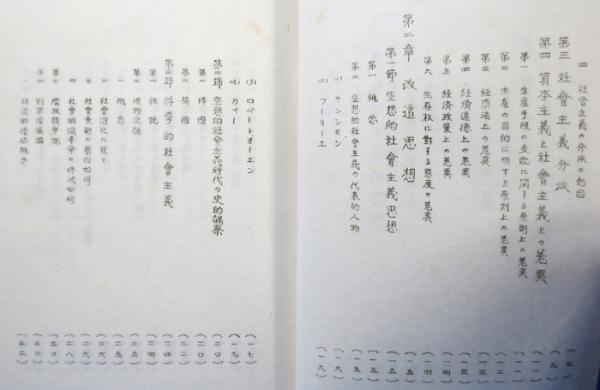 四 社會主義の分派の勃宿 (七)
第三 社會主義分派 (九)
第四 資本主義と社會主義との差異 (一一)
第一 生産手段の支配に関する原則上の差異 (一一)
第二 生産の目的に関する原則上の差異 (一二)
第三 經濟法上の差異 (一三)
第四 經濟道德上の差異 (一三)
第五 經濟政策上の差異 (一四)
第六 生存权に對する態度の差異 (一四)
第二章 改造思想 (一五)
第一節 空想的社會主義思想 (一五)
第一 概念 (一五)
第二 空想的社會主義の代表的人物 (一五)
(1) サンシモン (一六)
(2) フーリーエ (一六)
(3) ロバートオーエン (一七)
(4) カベー (一九)
第二節 空想的社會主義時代の史的觀察 (二〇)
一 佛國 (二〇)
二 英國 (二二)
第三節 科學的社會主義 (二四)
第一 概説 (二四)
第二 唯物史觀 (二五)
一 概念 (二五)
二 社會進化に就て (二六)
三 社會運動の原因如何 (二六)
四 社會組織革命の時機如何 (二八)
第三 階級鬪爭説 (三〇)
第四 剩余價値論 (三二)
一 經濟的價値概念 (三二)